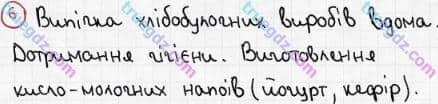 6) Випічка хлібобулочних виробів вдома.
Дотримання гігієни. Виготовлення
кисло-молочних напоїв (йогурт, кефір).